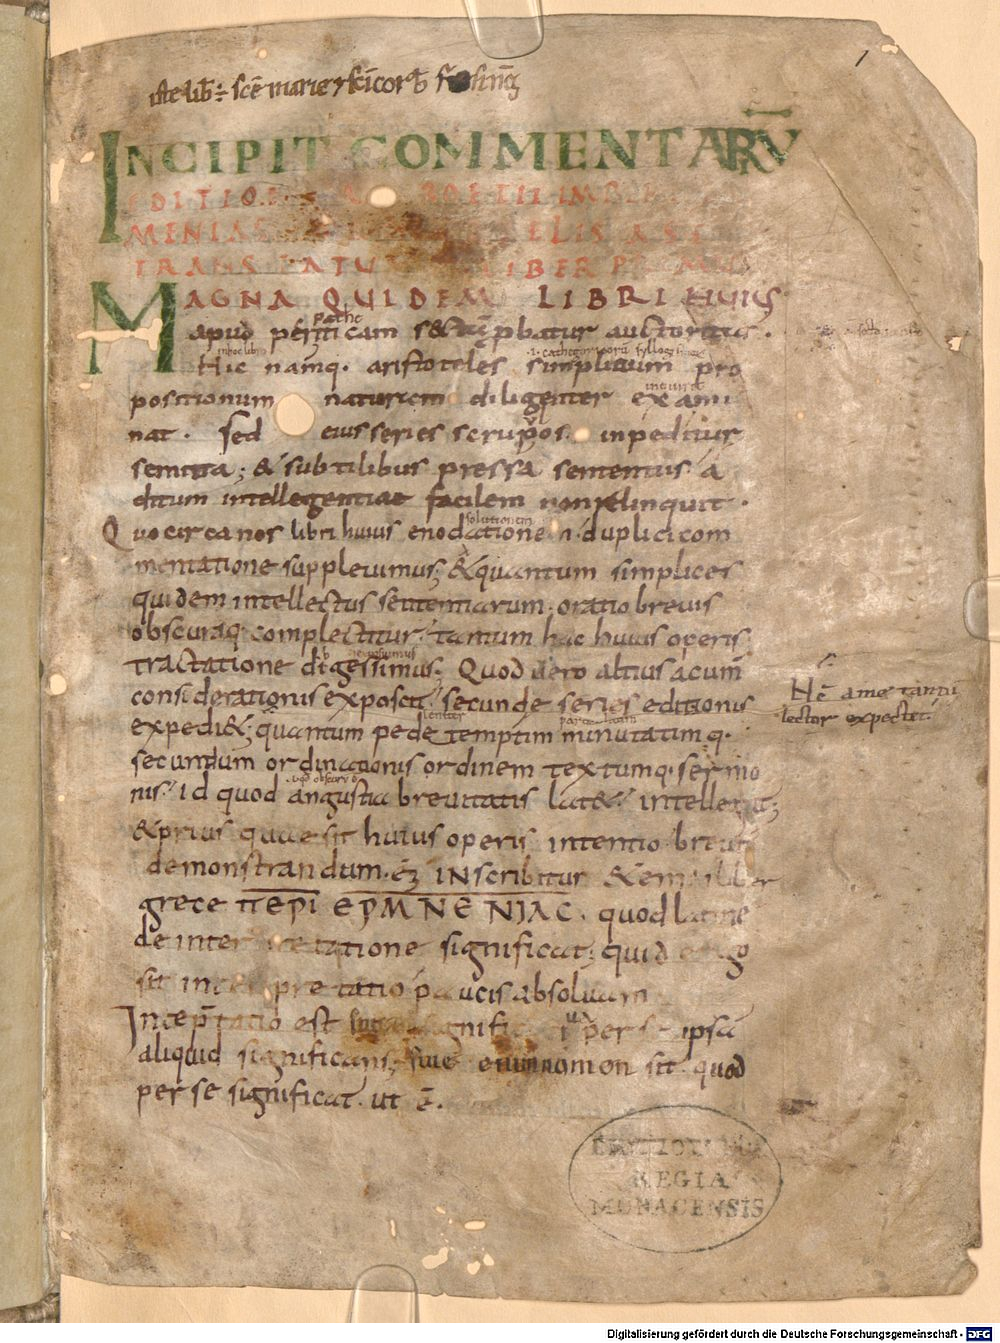 1
iste lib̄ ÷ scē marie & sc̄i corb̄
INCIPIT COMMENTARIV̄
EDITIO BOETII IN
MENIAS ELIS A SE
TRANSLATUS LIBER PRIMUS
MAGNA QUIDEM LIBRI HUIUS
apud peripatheticam sectā p̱batur auctoritas.
in hoc libro .i. cathegoricorū syllogismorum
Hic namq. aristoteles simplicium pro
positionum naturam diligenter exami
nat. sed eius series scruposa inpeditur
semita; & subtilibus pressa sententiis a
ditum intellegentiae facilem non relinquit.
solutionem
Quocirca nos libri huius enodatione n̄ duplici com
mentatione supplevimus; & quantum simplices
quidem intellectus sententiarum. oratio brevis
obscuraq. complectitur. tantum hac huius operis
exposuimus
tractatione digessimus; Quod vero altius acum̄
considerationis exposcit. secunde series editionis
Hc̄ a me tantū
lector expectet.
leniter
expedi&; quantum pede temptim minutatimq.
secundum ordinationis ordinem textumq. sermo
nis. id quod angustia brevitatis lat& intellegat;
& prius quae sit huius operis intentio breviter
demonstrandum. ē; INscribitur &enim liber
grece ΠΕΡΙ ΕΡΜΝΕΝΙΑC. quod latine
de interpretatione significat; quid ergo
sit interpretatio paucis absolvam
Interp̄tatio est vox significativa per se ipsā
aliquid significans; sive enim nomon sit. quod
per se significat. ut ē.
BIBLIOTHECA
REGIA
MONACENSIS
Digitalisierung gefördert durch die Deutsche Forschungsgemeinschaft - DFG